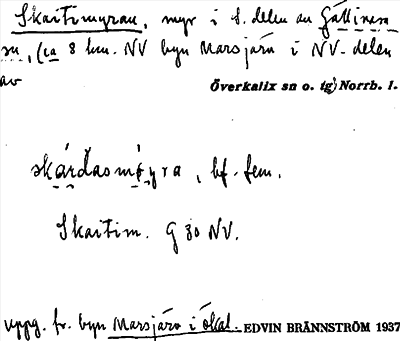 Skaitimyran, myr i S. delen av Gällivare
sn, (ca 8 km. NV byn Marsjärv i NV-delen
av
Överkalix sn o. tg) Norrb. l.
skáɾdasmýra, bf. fem.
Skaitim. G 30 NV.
uppg. fr. byn Marsjärv i Ökal. EDVIN BRÄNNSTRÖM 1937